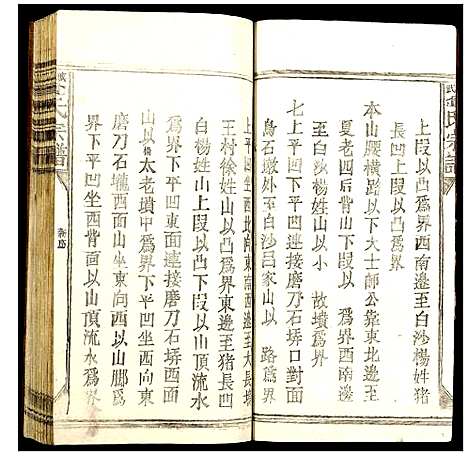 上段以凸爲界西南邊至白沙楊姓猪
長凹上段以凸爲界
本山腰橫路以下大士師公靠東北邊至
夏老四后背山下坑以 爲界西南邊
至白沙楊姓山以小 故墳爲界
七上平凹下平凹連接磨刀石塝口對面
烏石墩外至白沙呂家山以 路爲界
上平凹坐西北向東南西邊至大長
王村徐姓山以凸爲界東邊至猪長凹
白楊姓山上段以凸下段以山頂流水
爲界下平凹東面連接磨刀石塝西面
山以 太老墳中爲界平凹坐西向東
磨刀石壠西面山坐東向西以山脚爲
界下平凹坐西背面以山頂流水爲界
氏宗譜
氏宗譜